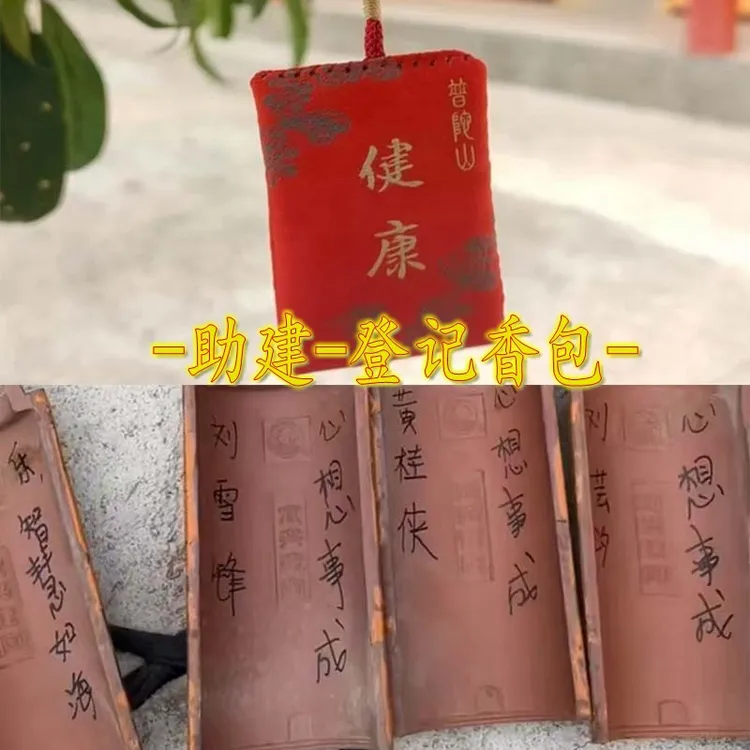 普陀山
健康
-助建-登记香包-
智慧如海
心想事成
刘雪峰
心想事成
黄桂侠
心想事成
刘芸汐